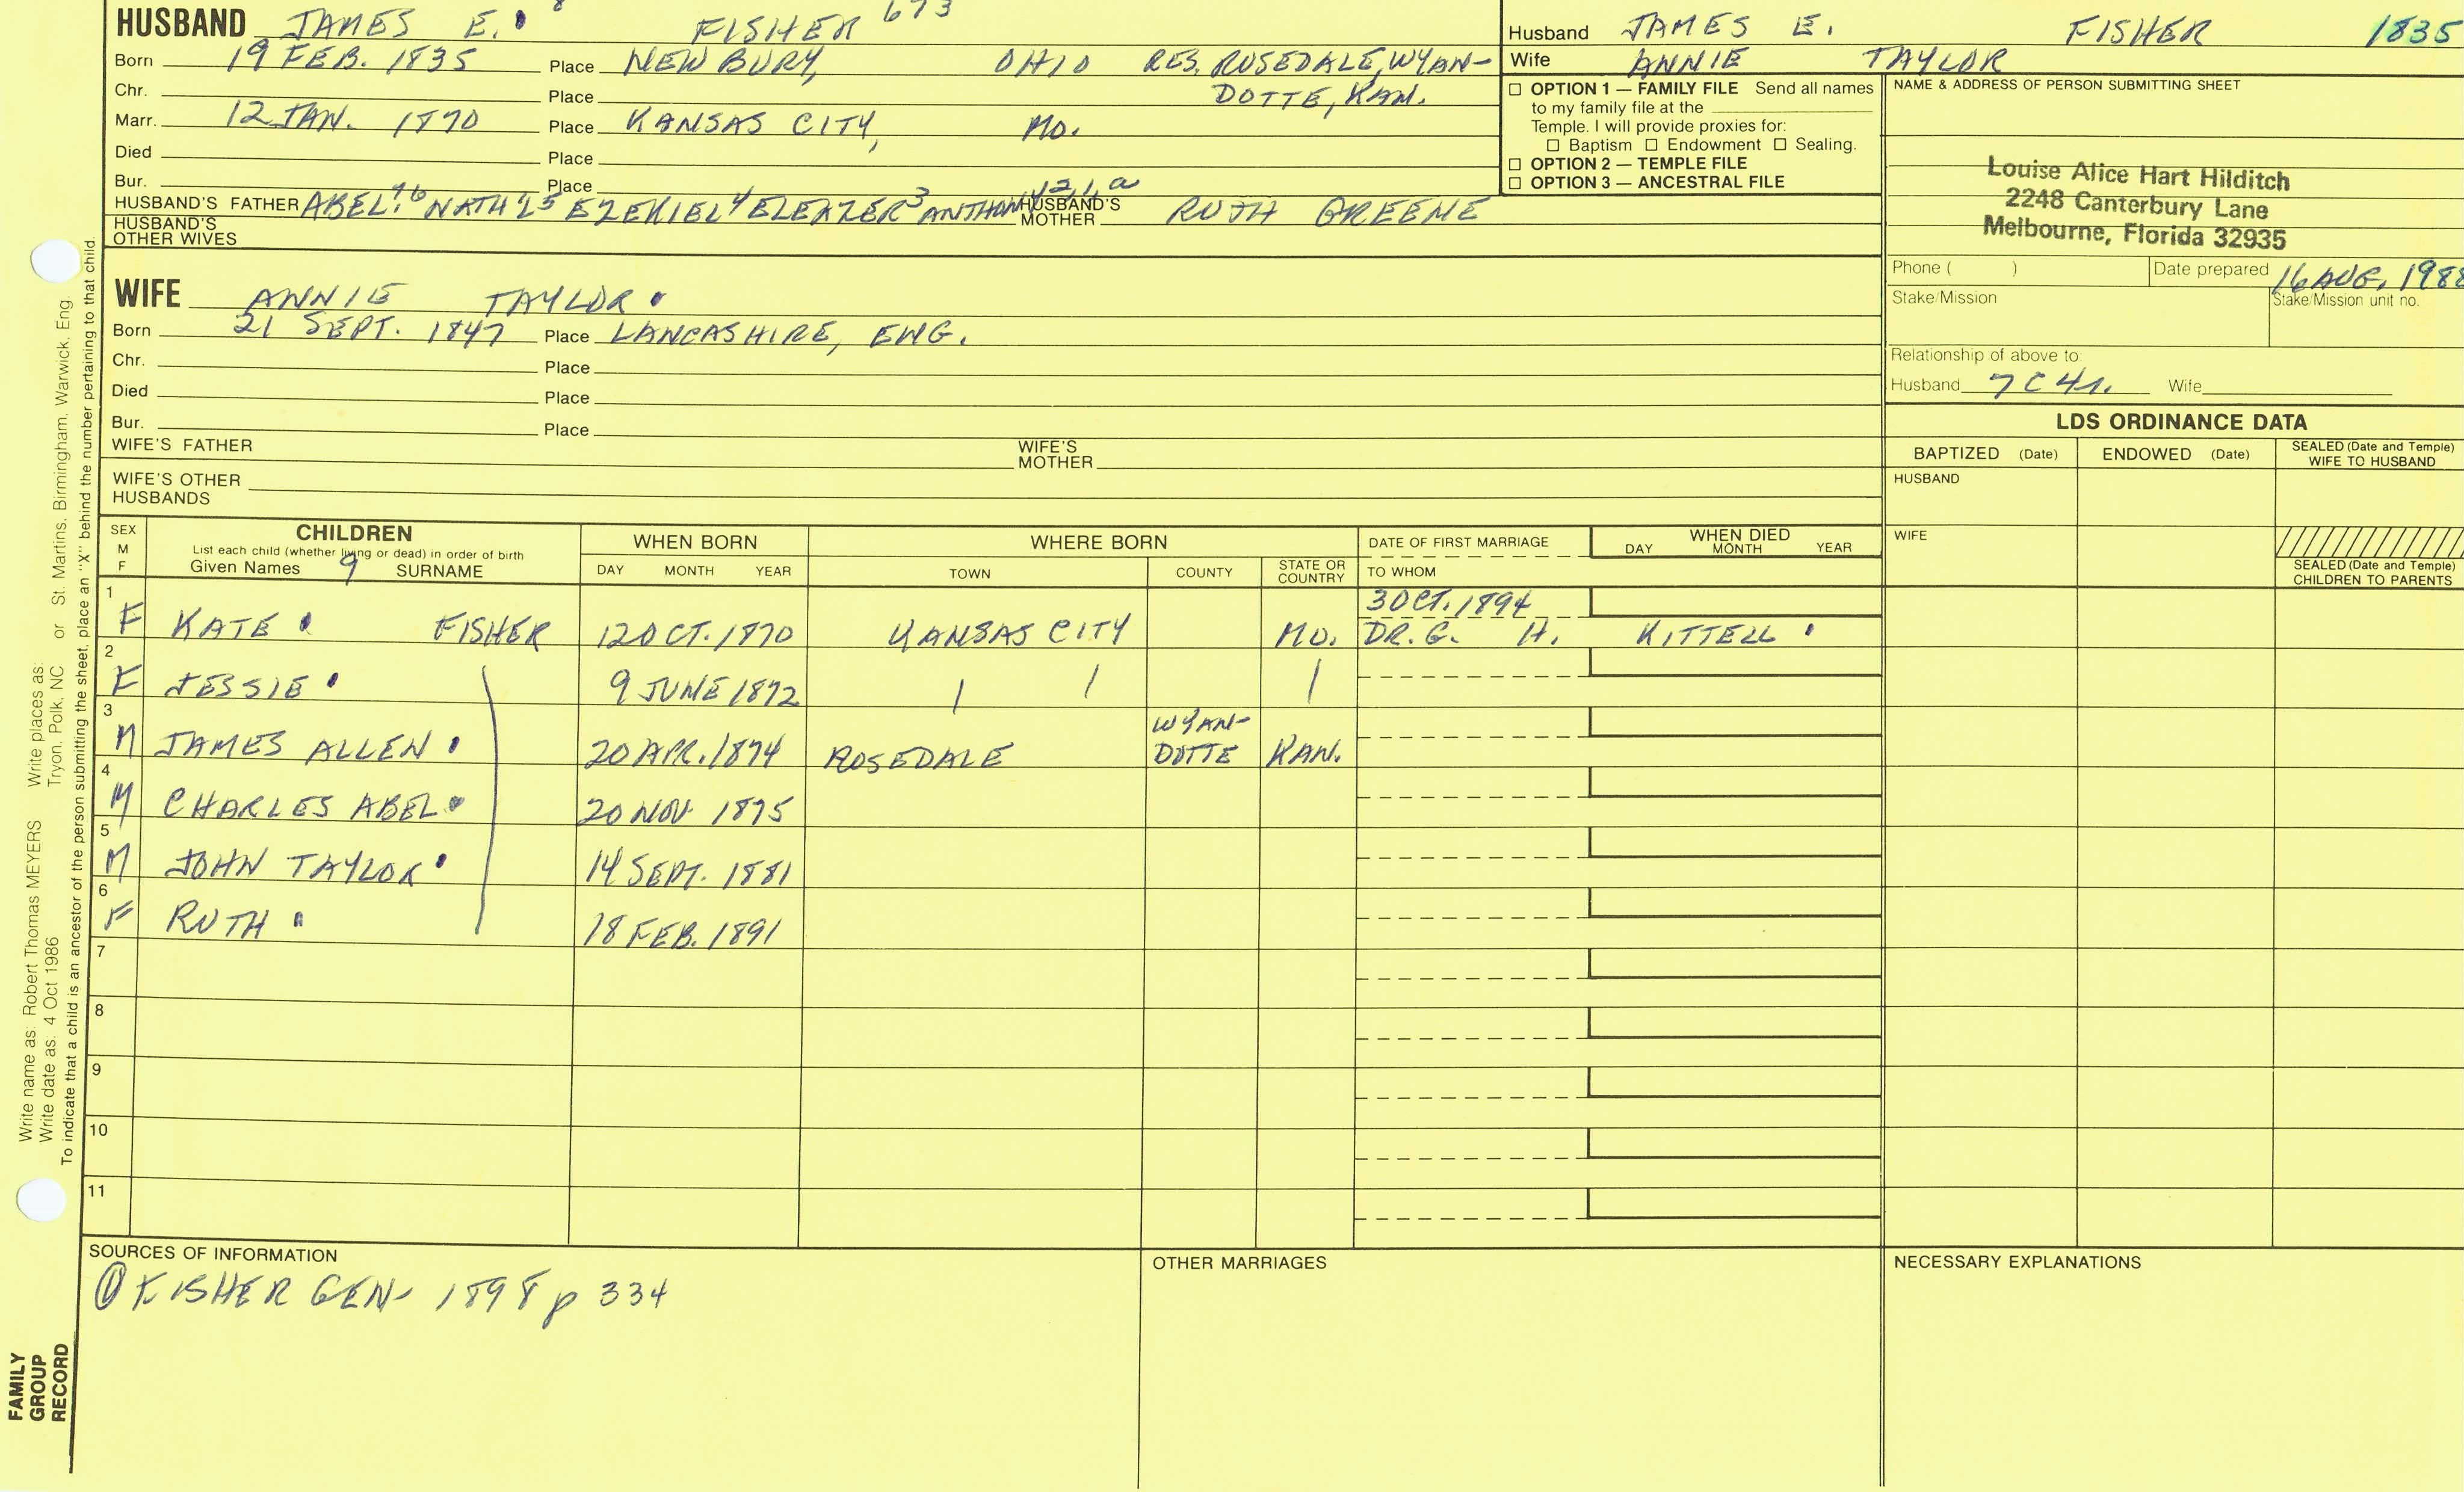 HUSBAND JAMES E. FISHER 673
Born 19 FEB. 1835 Place NEWBURY, OHIO RES. ROSEDALE, WYAN-
DOTTE, KAN.
Chr. Place
Marr. 12 JAN. 1870 Place KANSAS CITY, MO.
Died Place
Bur. Place
HUSBAND'S FATHER ABEL 6 NATH'L 5 EZEKIEL 4 ELEAZER 3 HUSBAND'S MOTHER RUTH GREENE
HUSBAND'S OTHER WIVES
WIFE ANNIE TAYLOR
Born 21 SEPT. 1847 Place LANCASHIRE, ENG.
Chr. Place
Died Place
Bur. Place
WIFE'S FATHER WIFE'S MOTHER
WIFE'S OTHER HUSBANDS
Husband JAMES E. FISHER 1835
Wife ANNIE TAYLOR
☐ OPTION 1 — FAMILY FILE Send all names
to my family file at the
Temple. I will provide proxies for:
☐ Baptism ☐ Endowment ☐ Sealing.
☐ OPTION 2 — TEMPLE FILE
☐ OPTION 3 — ANCESTRAL FILE
NAME & ADDRESS OF PERSON SUBMITTING SHEET
Louise Alice Hart Hilditch
2248 Canterbury Lane
Melbourne, Florida 32935
Phone ( ) Date prepared 16 AUG, 1988
Stake/Mission Stake/Mission unit no.
Relationship of above to:
Husband 7C4r. Wife
LDS ORDINANCE DATA
BAPTIZED (Date) ENDOWED (Date) SEALED (Date and Temple) WIFE TO HUSBAND
HUSBAND
WIFE
SEALED (Date and Temple)
CHILDREN TO PARENTS
SEX M F CHILDREN WHEN BORN WHERE BORN DATE OF FIRST MARRIAGE WHEN DIED
List each child (whether living or dead) in order of birth
Given Names 9 SURNAME DAY MONTH YEAR TOWN COUNTY STATE OR COUNTRY TO WHOM DAY MONTH YEAR
1 3 OCT. 1894
F KATE FISHER 12 OCT. 1870 KANSAS CITY MO. DR. G. H. KITTELL
2
F JESSIE 9 JUNE 1872 / / /
3 WYAN-
M JAMES ALLEN 20 APR. 1874 ROSEDALE DOTTE KAN.
4
M CHARLES ABEL 20 NOV. 1875
5
M JOHN TAYLOR 14 SEPT. 1881
6
F RUTH 18 FEB. 1891
7
8
9
10
11
SOURCES OF INFORMATION
① FISHER GEN- 1898 p 334
OTHER MARRIAGES
NECESSARY EXPLANATIONS
Write name as: Robert Thomas MEYERS Write places as: St. Martins, Birmingham, Warwick, Eng.
Write date as: 4 Oct 1986 Tryon, Polk, NC or
To indicate that a child is an ancestor of the person submitting the sheet, place an "X" behind the number pertaining to that child.
FAMILY
GROUP
RECORD